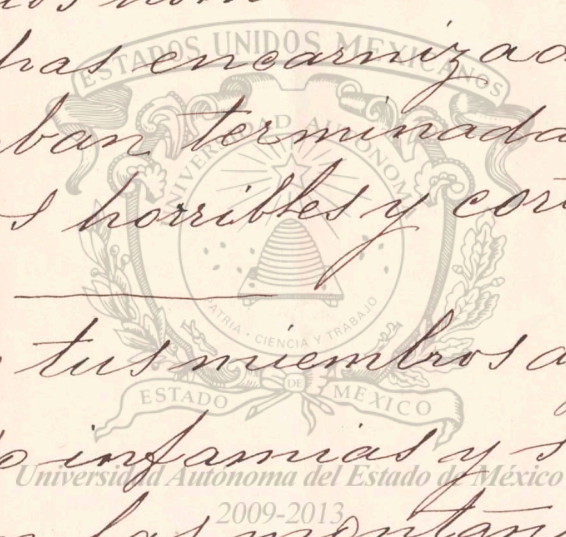 has encarnizad
ban terminada
s horribles y cor
tus miembros a
infamias y s
las montañ
ESTADOS UNIDOS MEXICANOS
UNIVERSIDAD AUTONOMA
PATRIA · CIENCIA Y TRABAJO
ESTADO DE MEXICO
Universidad Autónoma del Estado de México
2009-2013